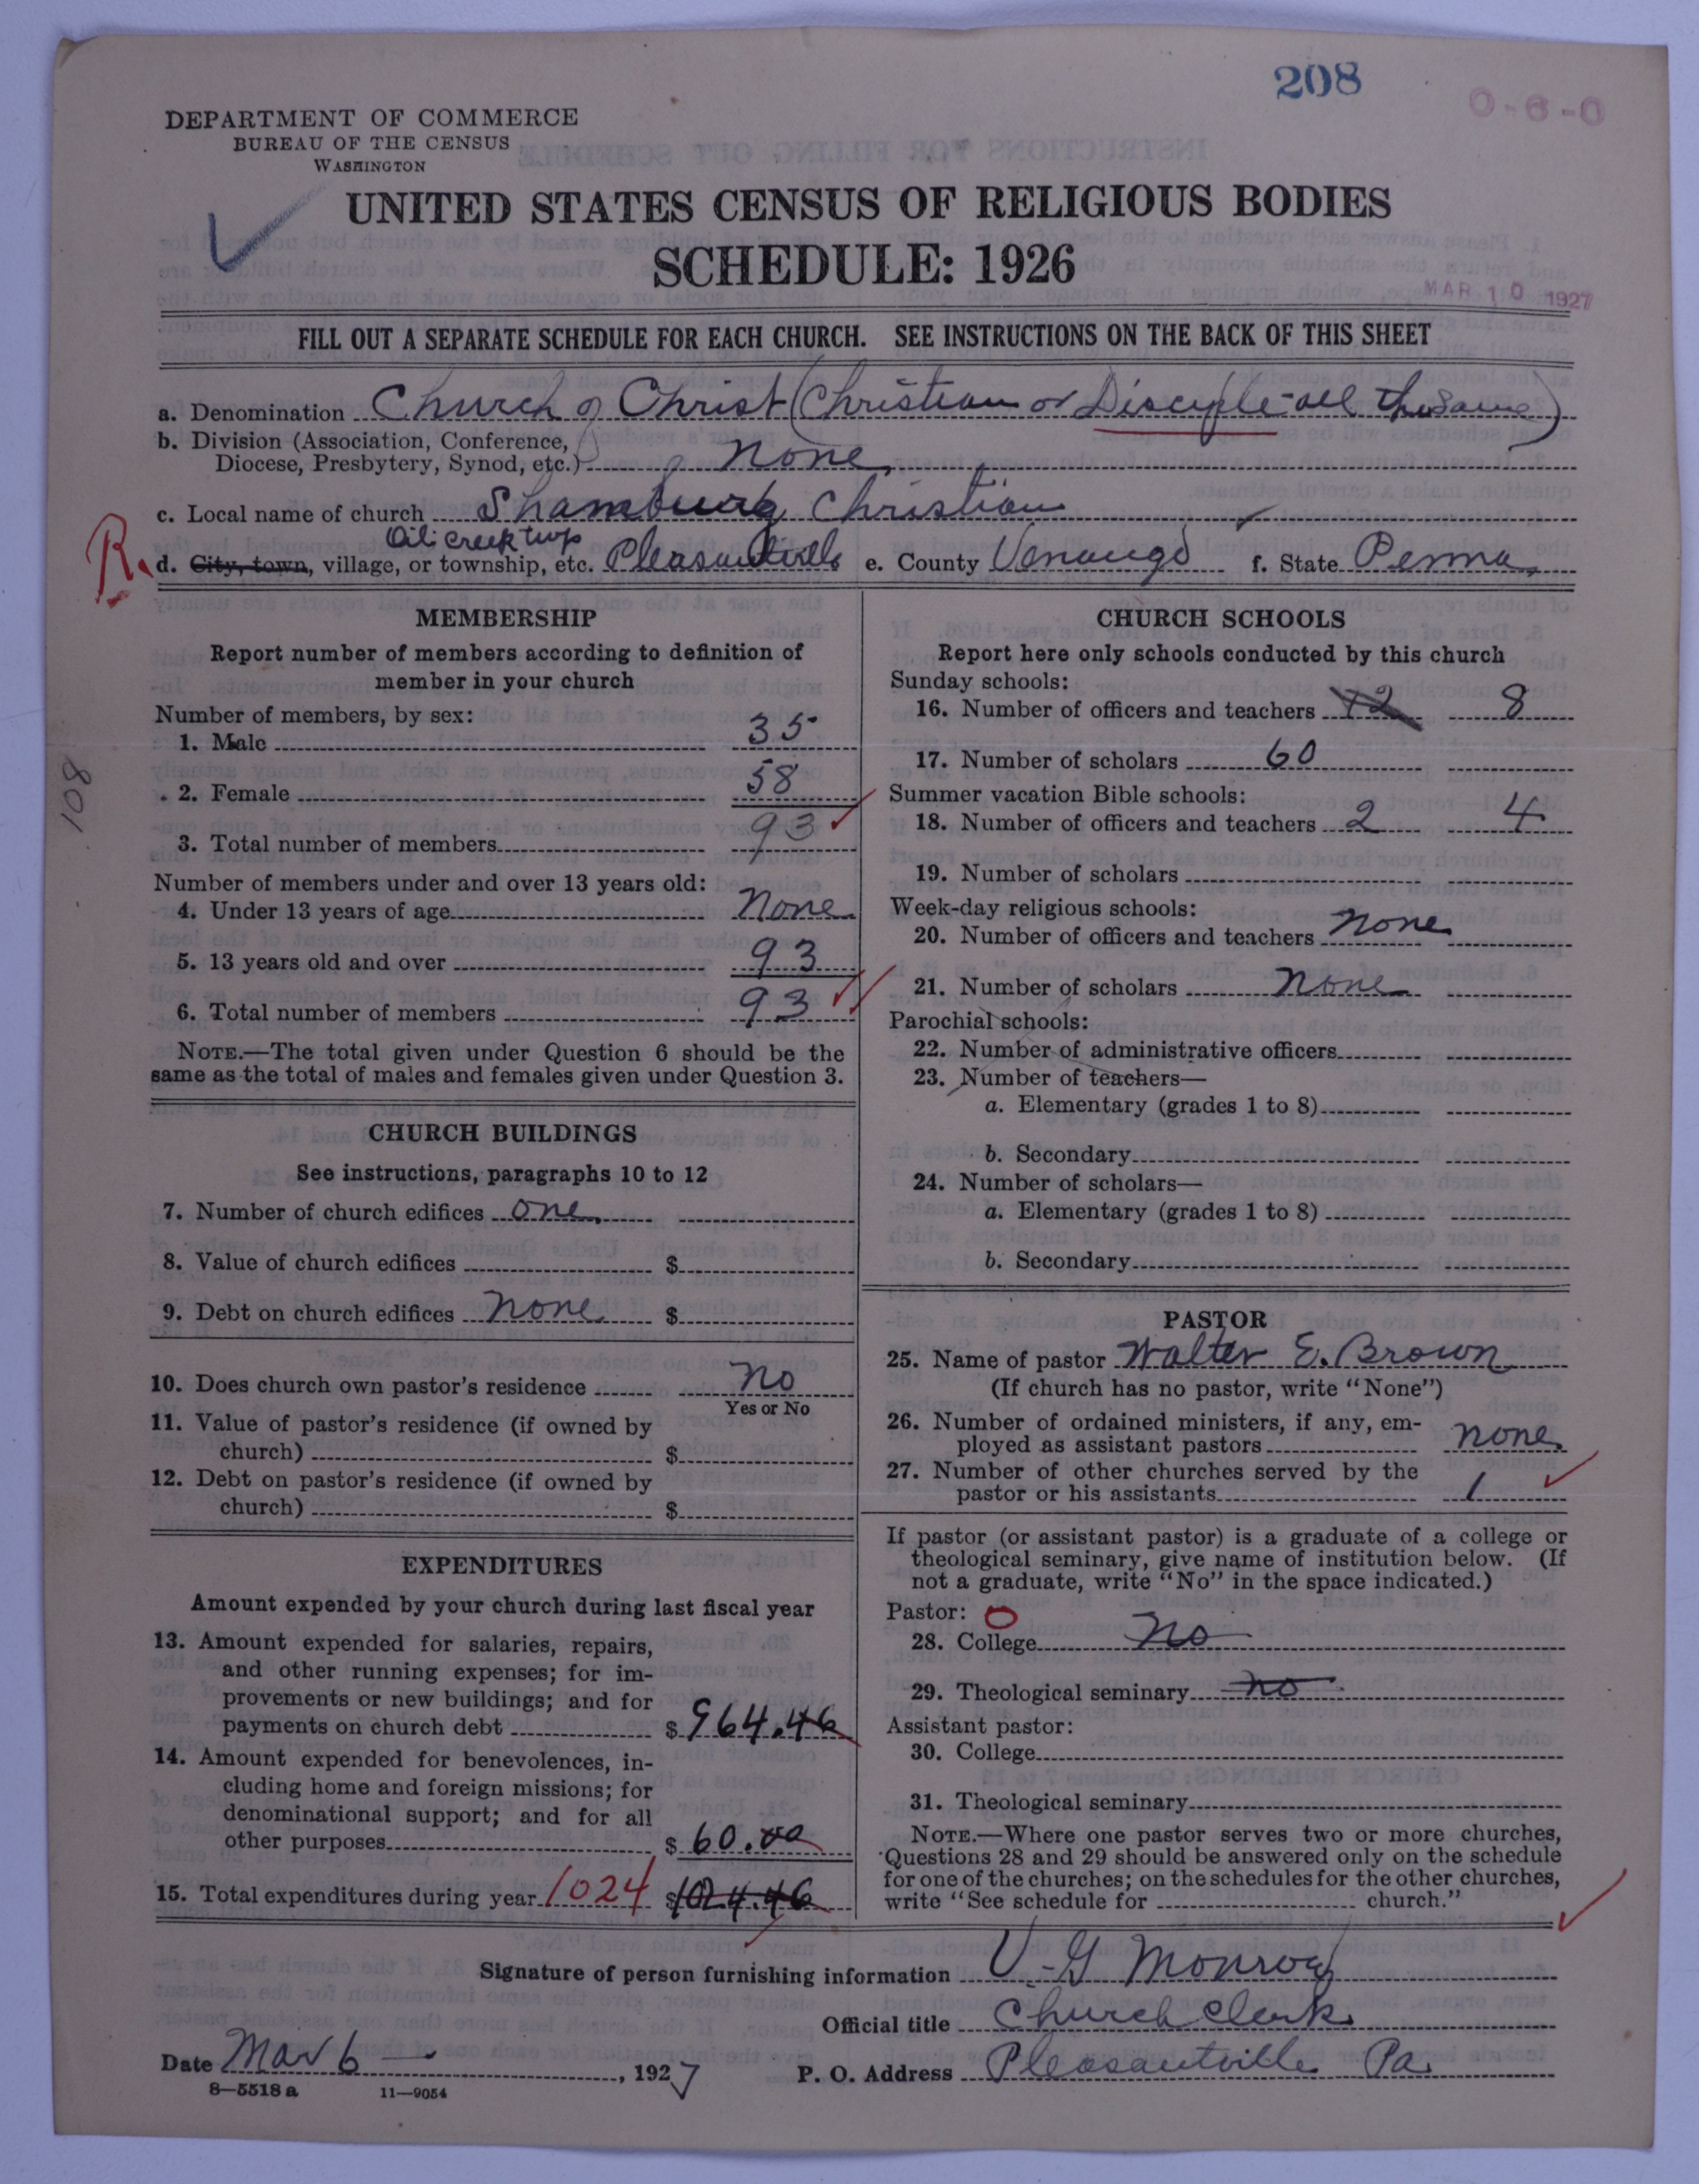 208
0-6-0
DEPARTMENT OF COMMERCE
BUREAU OF THE CENSUS
WASHINGTON
UNITED STATES CENSUS OF RELIGIOUS BODIES
SCHEDULE: 1926
MAR 10 1927
FILL OUT A SEPARATE SCHEDULE FOR EACH CHURCH. SEE INSTRUCTIONS ON THE BACK OF THIS SHEET
a. Denomination Church of Christ (Christian or Disciple-all the same)
b. Division (Association, Conference,
Diocese, Presbytery, Synod, etc.) none
c. Local name of church Shamburg Christian
Oil creek twp
R. d. City, town, village, or township, etc. Pleasantville e. County Venango f. State Penna.
MEMBERSHIP
Report number of members according to definition of
member in your church
Number of members, by sex:
1. Male 35
2. Female 58
3. Total number of members 93
Number of members under and over 13 years old:
4. Under 13 years of age none
5. 13 years old and over 93
6. Total number of members 93
NOTE.—The total given under Question 6 should be the
same as the total of males and females given under Question 3.
CHURCH BUILDINGS
See instructions, paragraphs 10 to 12
7. Number of church edifices one
8. Value of church edifices $
9. Debt on church edifices none $
10. Does church own pastor's residence no
Yes or No
11. Value of pastor's residence (if owned by
church) $
12. Debt on pastor's residence (if owned by
church) $
EXPENDITURES
Amount expended by your church during last fiscal year
13. Amount expended for salaries, repairs,
and other running expenses; for im-
provements or new buildings; and for
payments on church debt $ 964.46
14. Amount expended for benevolences, in-
cluding home and foreign missions; for
denominational support; and for all
other purposes $ 60.00
15. Total expenditures during year 1024 $1024.46
CHURCH SCHOOLS
Report here only schools conducted by this church
Sunday schools:
16. Number of officers and teachers 12 8
17. Number of scholars 60
Summer vacation Bible schools:
18. Number of officers and teachers 2 4
19. Number of scholars
Week-day religious schools:
20. Number of officers and teachers none
21. Number of scholars none
Parochial schools:
22. Number of administrative officers
23. Number of teachers—
a. Elementary (grades 1 to 8)
b. Secondary
24. Number of scholars—
a. Elementary (grades 1 to 8)
b. Secondary
PASTOR
25. Name of pastor Walter E. Brown
(If church has no pastor, write "None")
26. Number of ordained ministers, if any, em-
ployed as assistant pastors none
27. Number of other churches served by the
pastor or his assistants 1
If pastor (or assistant pastor) is a graduate of a college or
theological seminary, give name of institution below. (If
not a graduate, write "No" in the space indicated.)
Pastor: O
28. College no
29. Theological seminary no
Assistant pastor:
30. College
31. Theological seminary
NOTE.—Where one pastor serves two or more churches,
Questions 28 and 29 should be answered only on the schedule
for one of the churches; on the schedules for the other churches,
write "See schedule for church."
Signature of person furnishing information V. G Monroe
Official title Church Clerk
Date Mar 6 —, 1927 P. O. Address Pleasantville Pa.
8—5518 a 11—9054
108